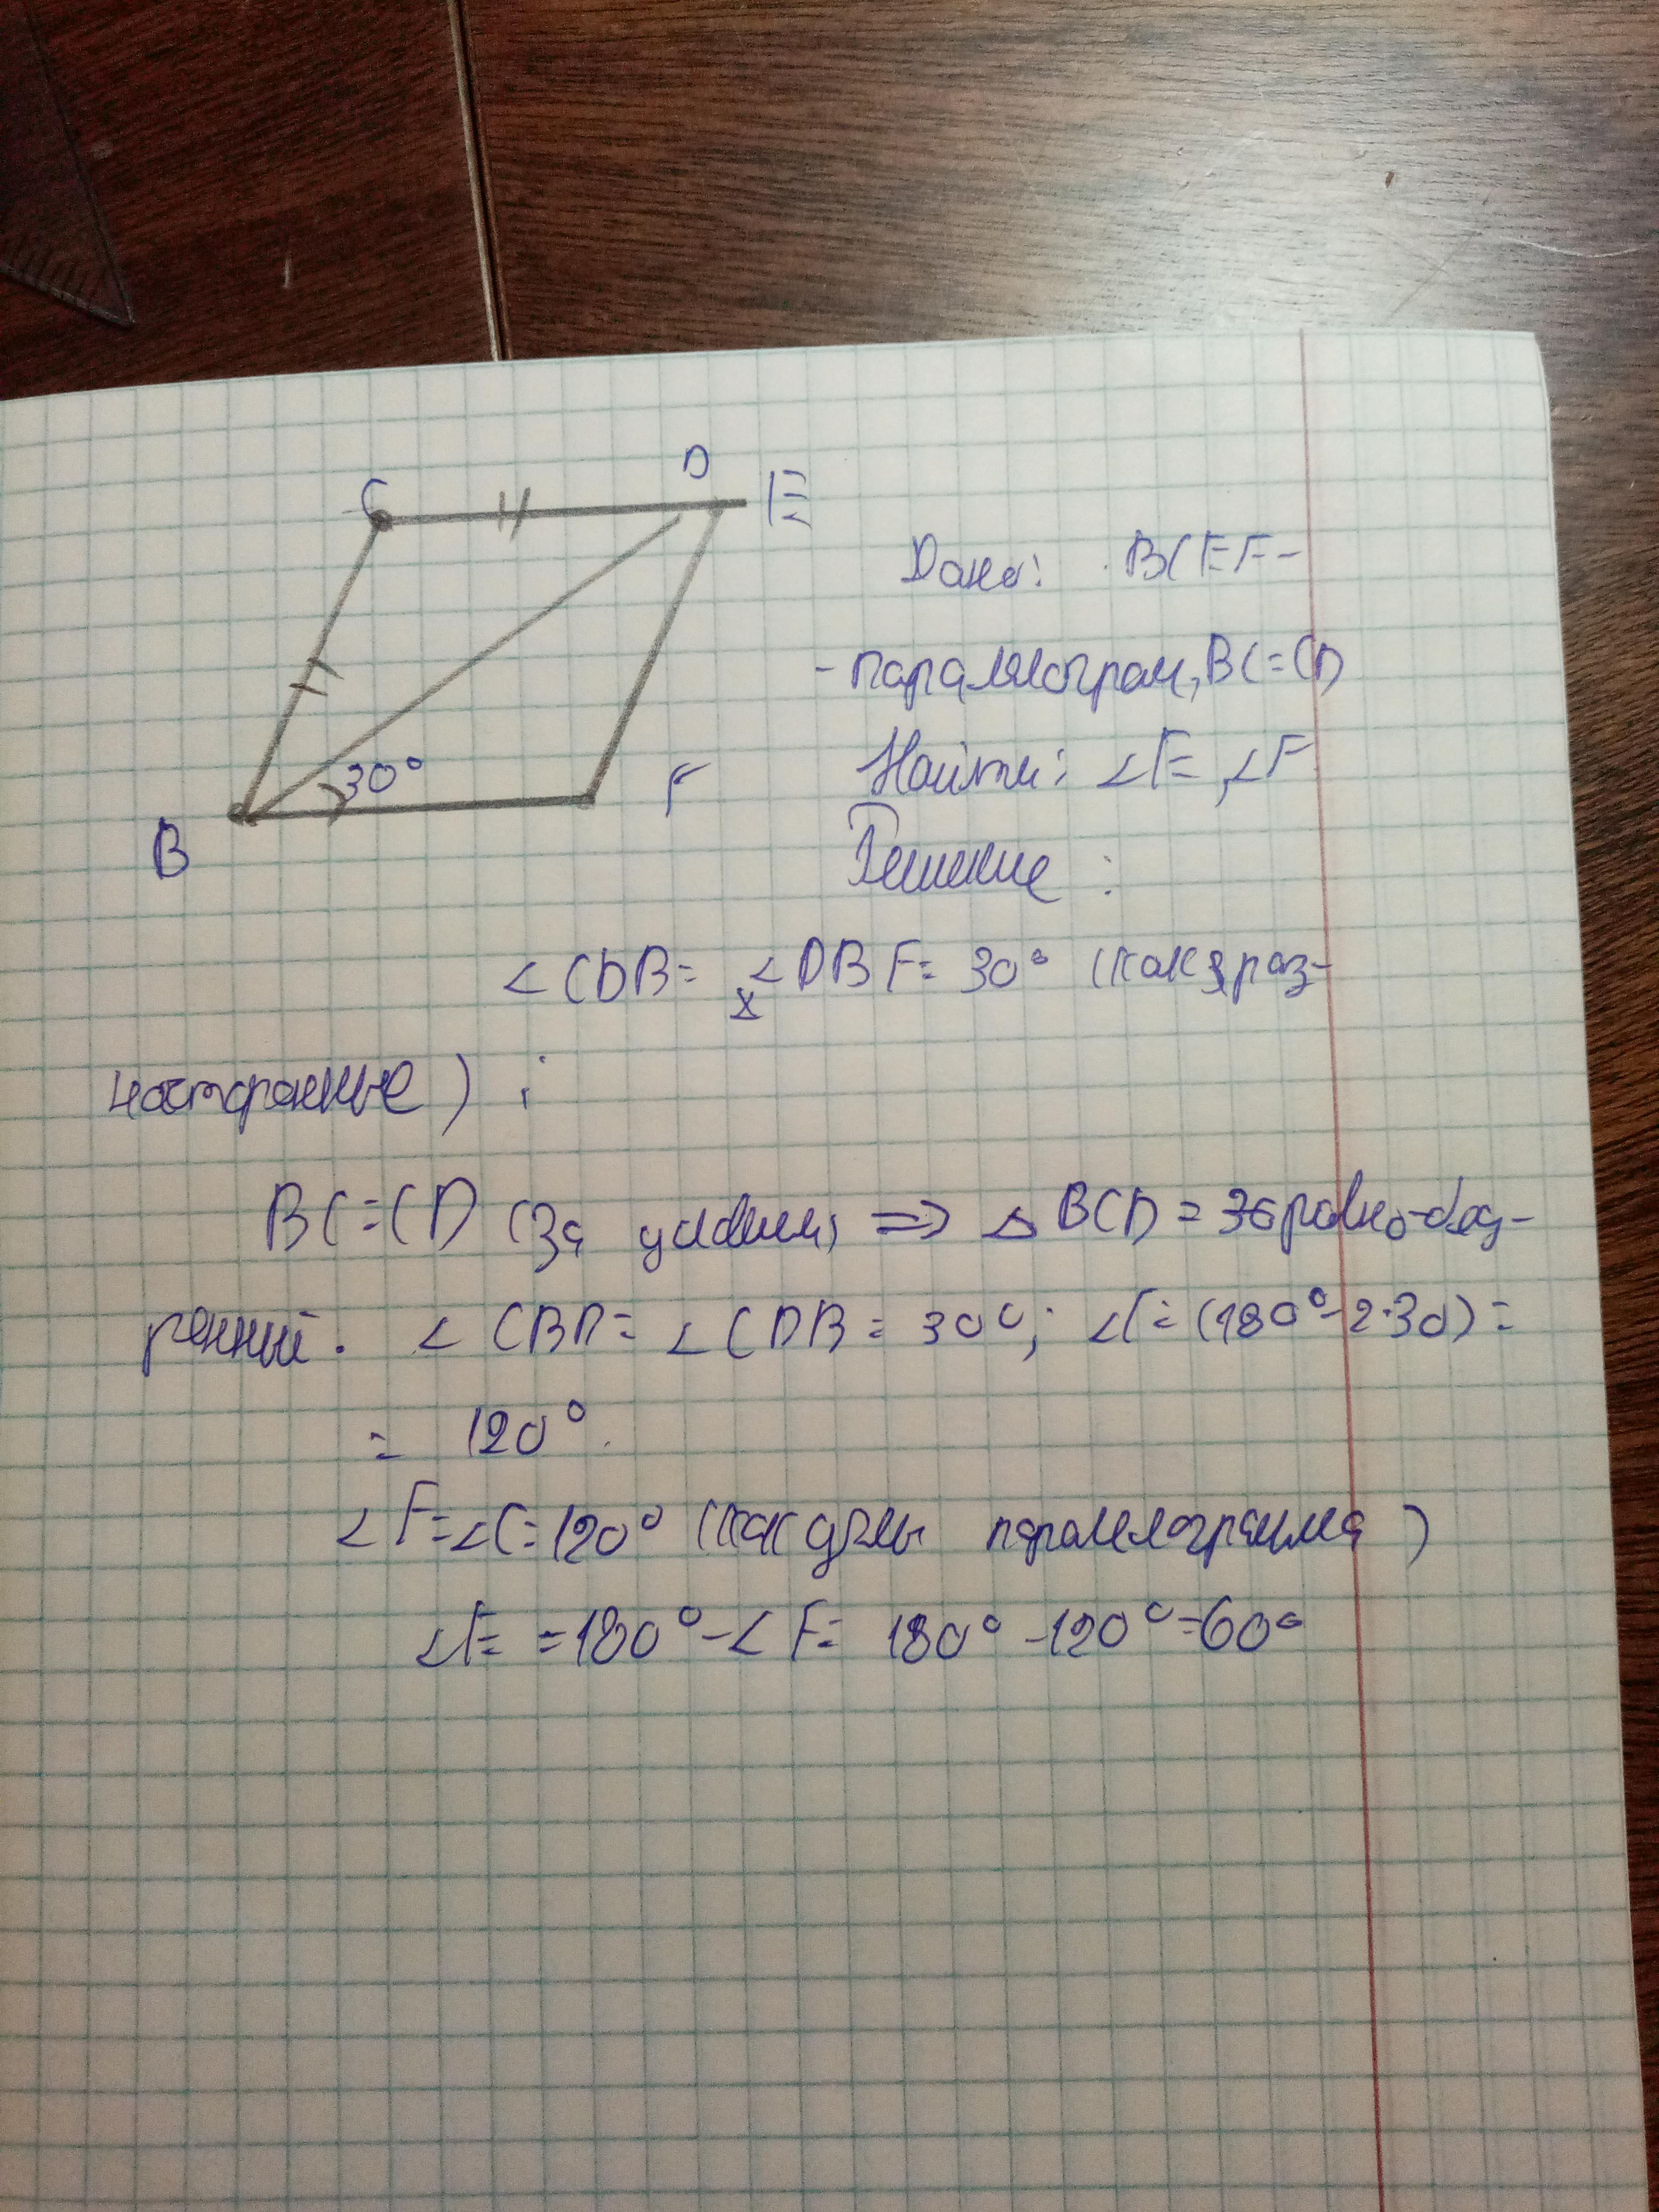 C D E
Дано: BCEF -
- параллелограм, BC = CD
30° F
Найти: ∠E, ∠F
B
Решение :
∠CDB = ∠DBF = 30° (как
носторонние) ;
BC = CD (За условием) => △ BCD =
ренний. ∠CBD = ∠CDB = 30°; ∠C = (180° - 2·30) =
= 120°.
∠F = ∠C = 120° (как углы параллелограмма)
∠E = = 180° - ∠F = 180° - 120° = 60°